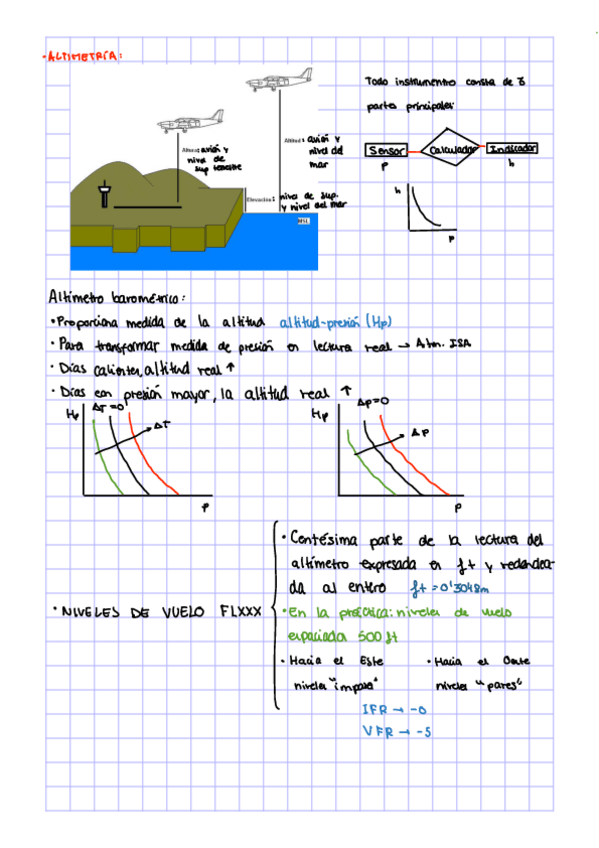 · ALTIMETRÍA:
Todo instrumento consta de 3
partes principales:
Sensor Calculador Indicador
p h
Altura: avión y
nivel de
sup terrestre
Altitud: avión y
nivel del
mar
Elevación: nivel de sup.
y nivel del mar
MSL
h
p
Altímetro barométrico:
· Proporciona medida de la altitud altitud-presión (Hp)
· Para transformar medida de presión en lectura real → Atm. ISA
· Días calientes, altitud real ↑
· Días con presión mayor, la altitud real ↑
Hp ΔT=0 ΔT p
Hp Δp=0 Δp p
· NIVELES DE VUELO FLXXX
· Centésima parte de la lectura del
altímetro expresada en ft y redondea-
da al entero ft = 0'3048m
· En la práctica: niveles de vuelo
espaciada 500 ft
· Hacia el Este
niveles "impares"
· Hacia el Oeste
niveles "pares"
IFR → -0
VFR → -5